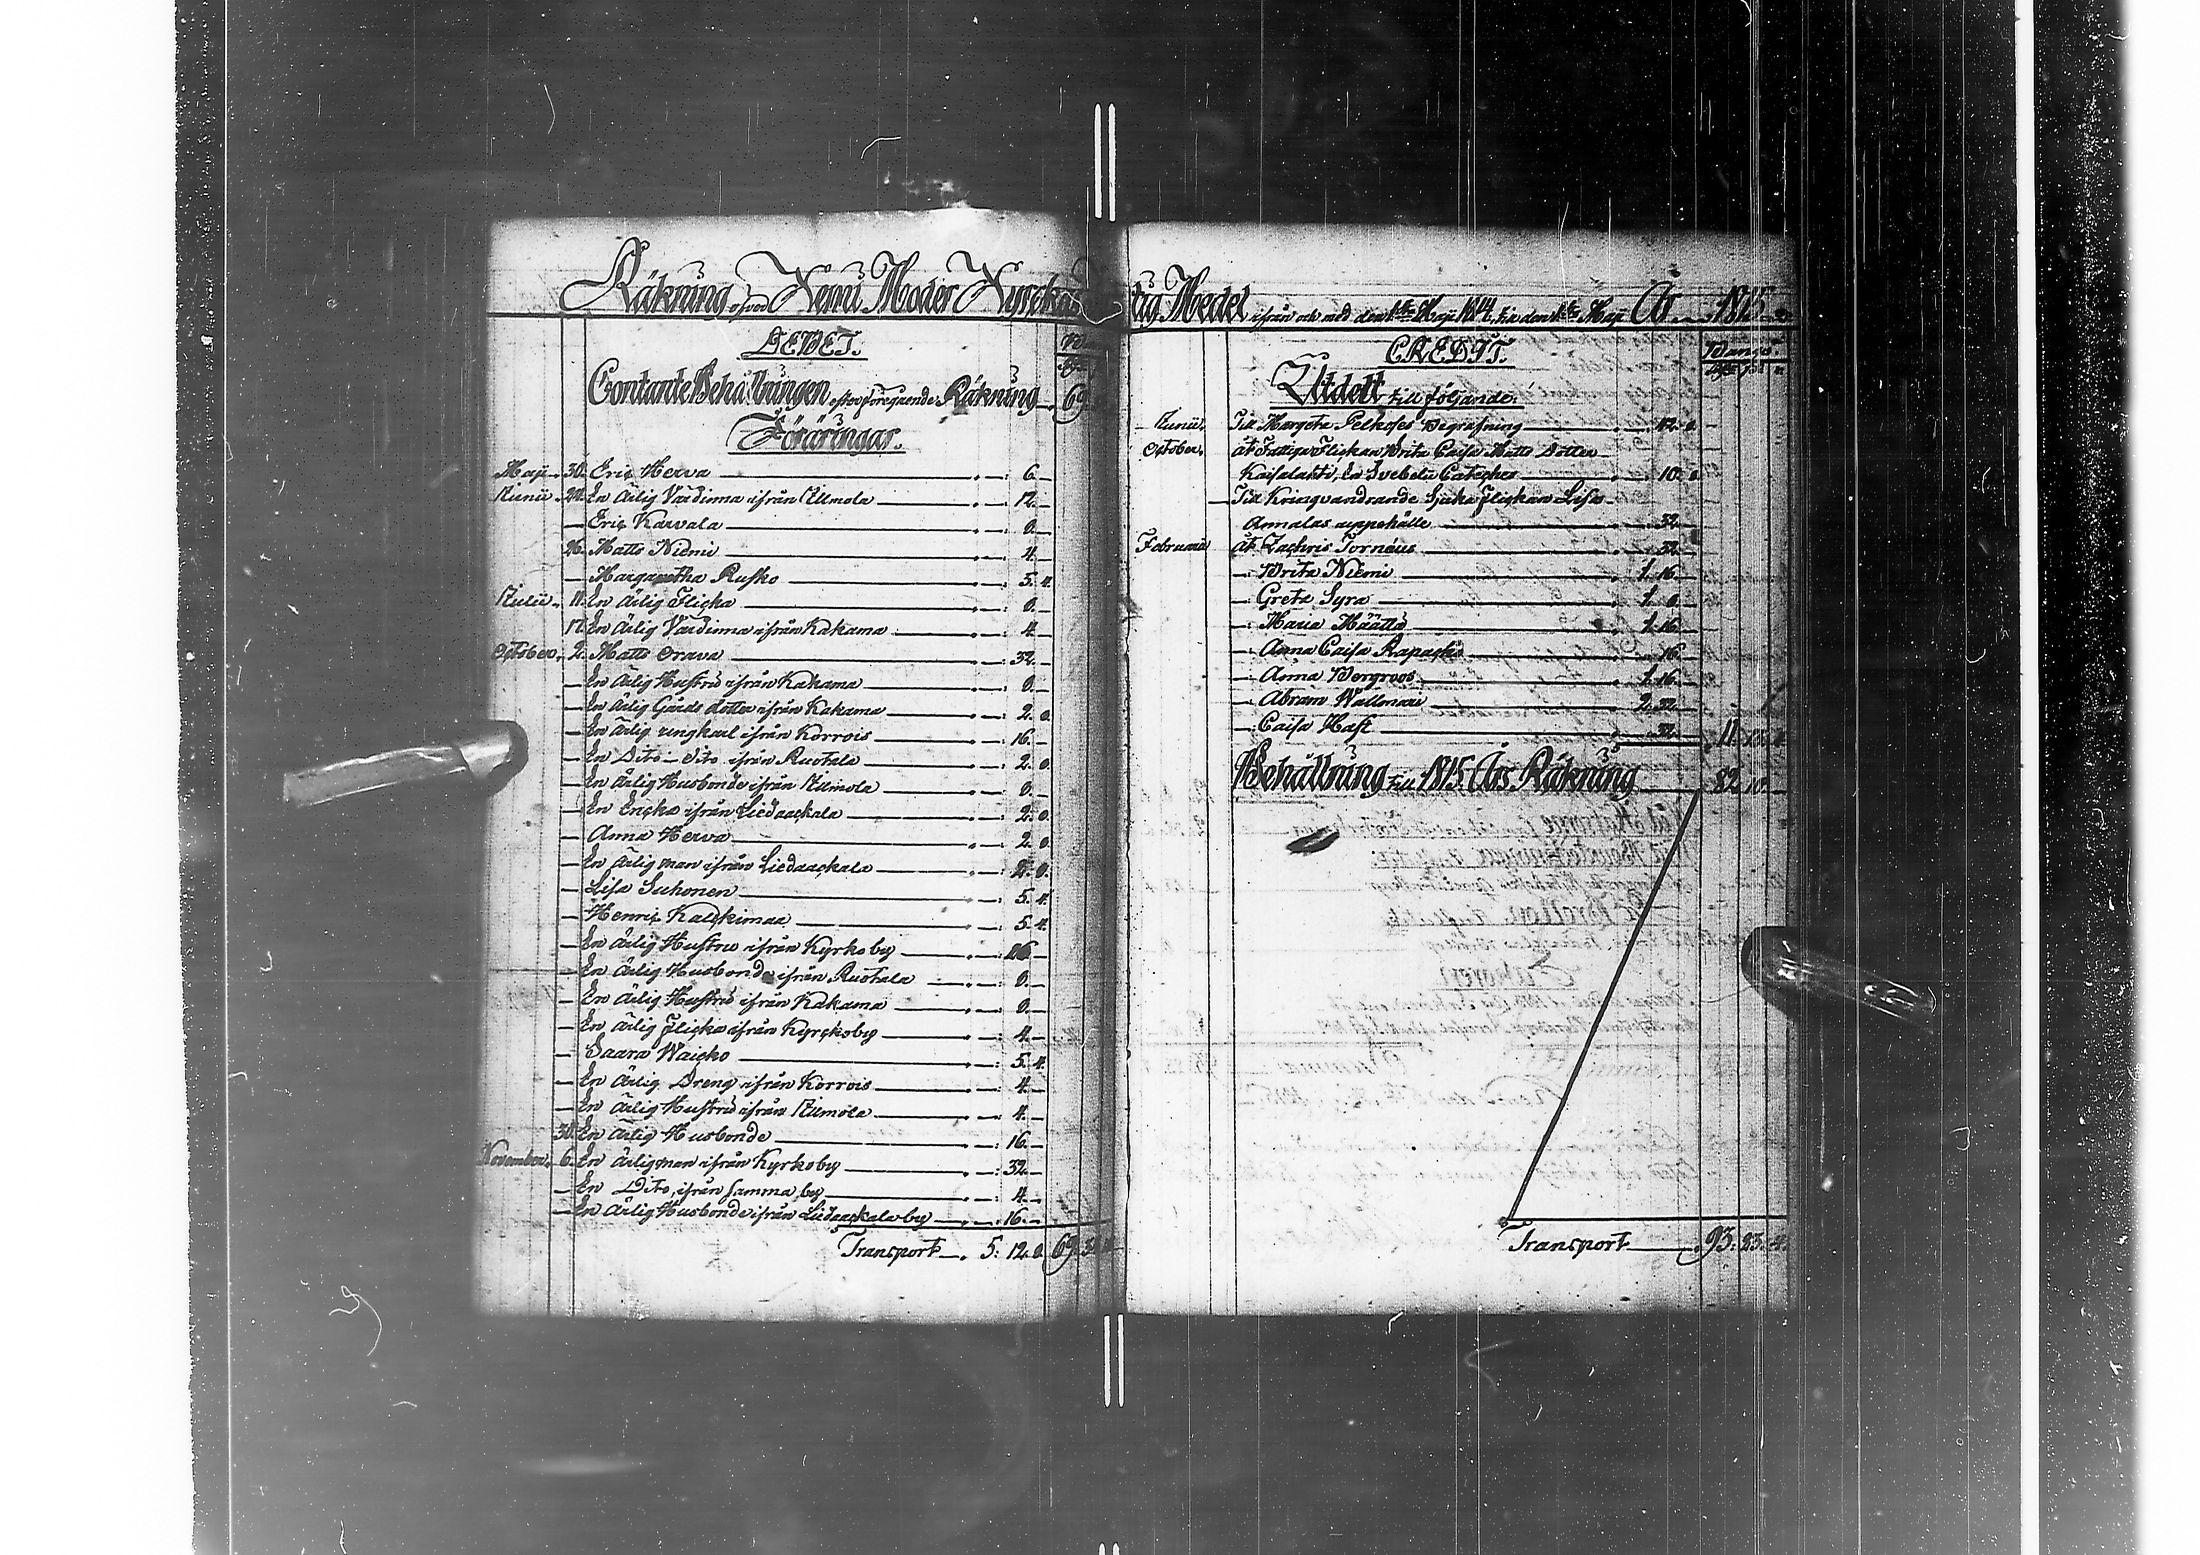 Räkning öfver Kemi Moder Kyrckas
DEBET.
Contante Behållningen efter föregående Räkning 69
Föräringar.
Maji 30. Eric Herva 6.
Junii En Ärlig Värdinna ifrån Jlmola 12.
Eric Karvala
26. Matts Niemi 4.
Margaretha Rusko 5. 4.
Julii 11. En Ärlig Flicka
17. En Ärlig Värdinna ifrån Kakama 4.
October. 2. Matts Orava 32.
En Ärlig Hustru ifrån Kakama
En Ärlig Gårds dotter ifrån Kakama 2.
En Ärlig ungkarl ifrån Korrois 16.
En Dito Dito ifrån Ruotala 2.
En Ärlig Husbonde ifrån Jlmola
En Encka ifrån Liedaackala 2.
Anna Herva 2.
En Ärlig man ifrån Liedaackala
Lisa Suhonen 5. 4.
Henric Kalckimaa 5. 4.
En Ärlig Hustru ifrån Kyrkoby 16
En Ärlig Husbonde ifrån Ruotala
En Ärlig Hustru ifrån Kakama
En Ärlig Flicka ifrån Kyrckoby 4.
Saara Waicko 5. 4.
En Ärlig Dreng ifrån Korrois 4.
En Ärlig Hustru ifrån Jlmola 4.
30. En Ärlig Husbonde 16.
November. 6. En Ärlig man ifrån Kyrkoby 32.
En Dito, ifrån samma by 4.
En Ärlig Husbonde ifrån Liedaackala by 16.
Transport 5: 12. 69
tig Medel ifrån och med den 1ste Maji 1814. til den 1ste Maji År 1815.
CREDIT. Banco
Utdelt till följande:
Junii. Till Margeta Pelkoses Begrafning 12.
October. åt Fattiga Flickan Brita Caisa Matts Dotter
Kaisalahti, En Svebelii Cateches 10.
Till Kringvandrande Sjuka Flickan Lisa
Annalas uppehälle 32
Februarii åt Zachris Tornéus 32
Brita Niemi 1. 16
Greta Syra 1.
Maria Määttä 1. 16
Anna Caisa Rapacko 16
Anna Bergroos 1. 16
Abram Wallmari 2.
Caisa Hast 32 11.
Behållning till 1815. Års Räkning 82. 10.
Transport 93. 23. 4.